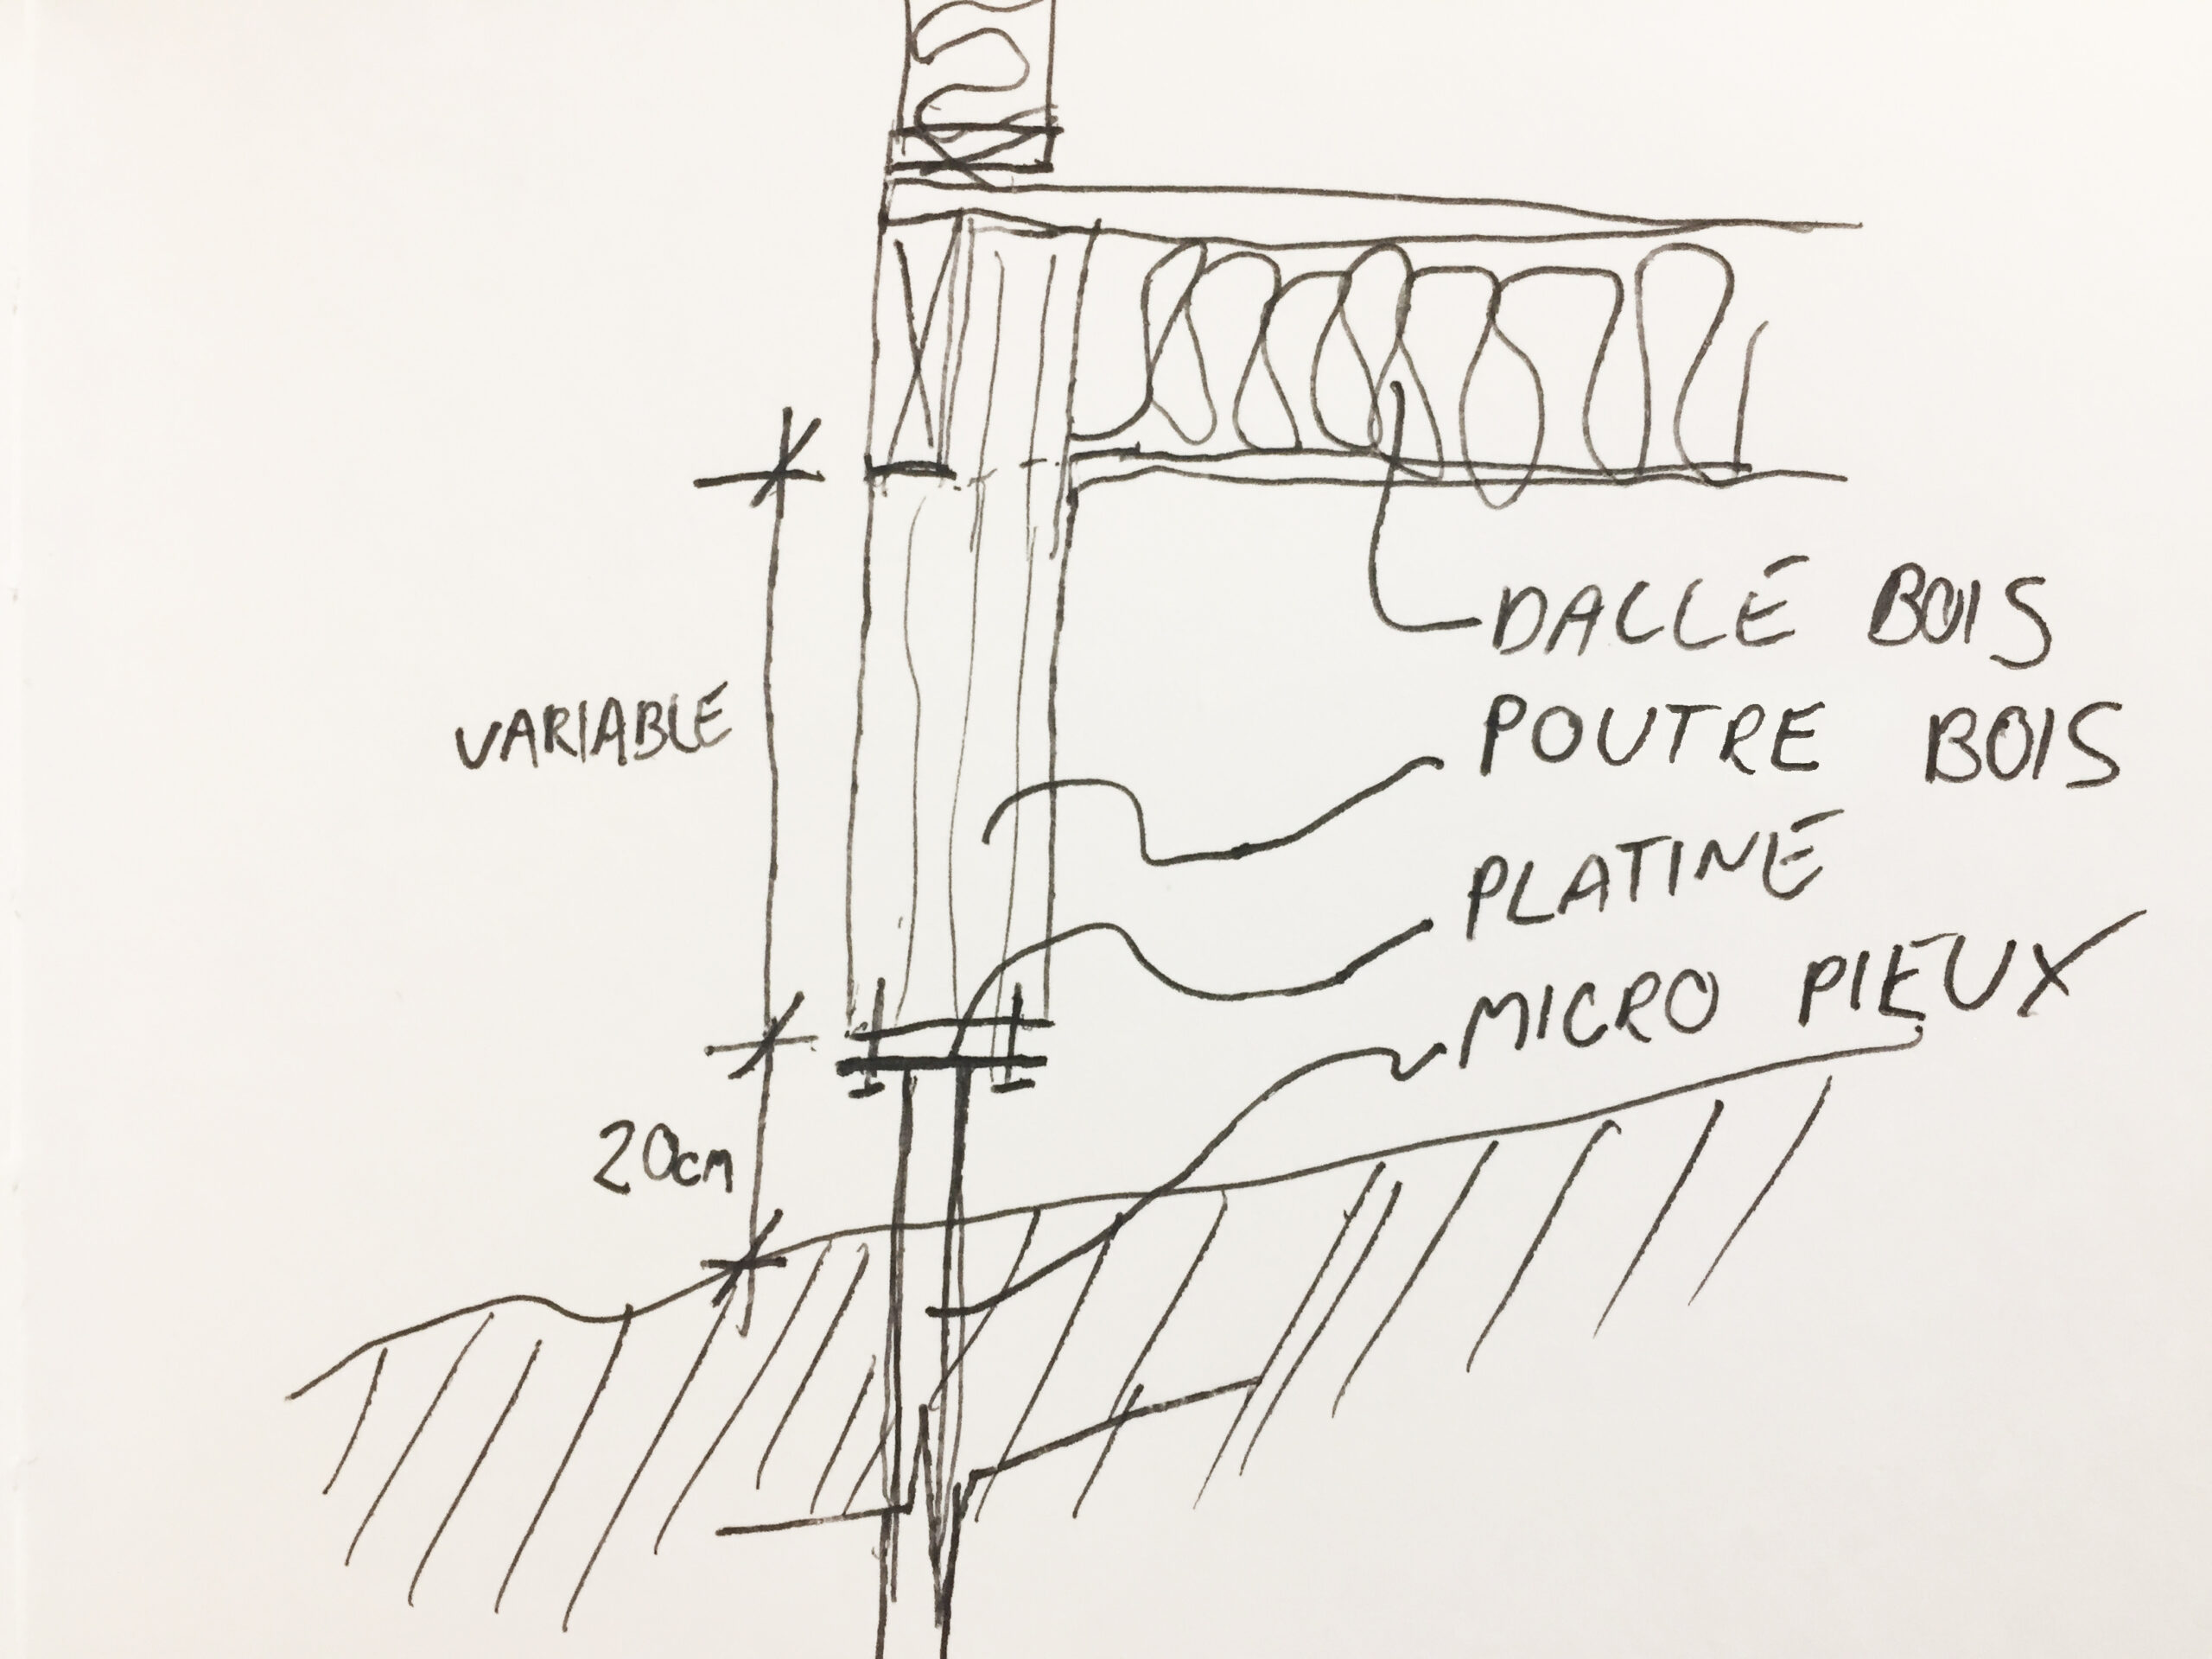 DALLE BOIS
POUTRE BOIS
VARIABLE
PLATINE
MICRO PIEUX
20cm